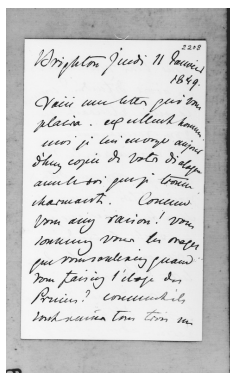 2208
Brighton Jeudi 11 Janvier
1849.
Voici une lettre qui vous
plaira. excellent homme
moi je lui envoye aujour
d'hui copie de votre dialogue
avec le roi que je trouve
charmant. Comme
vous avez raison! vous
vous les orages
que vous souleviez quand
vous faisiez l'éloge des
? comment ils
sont tous trois